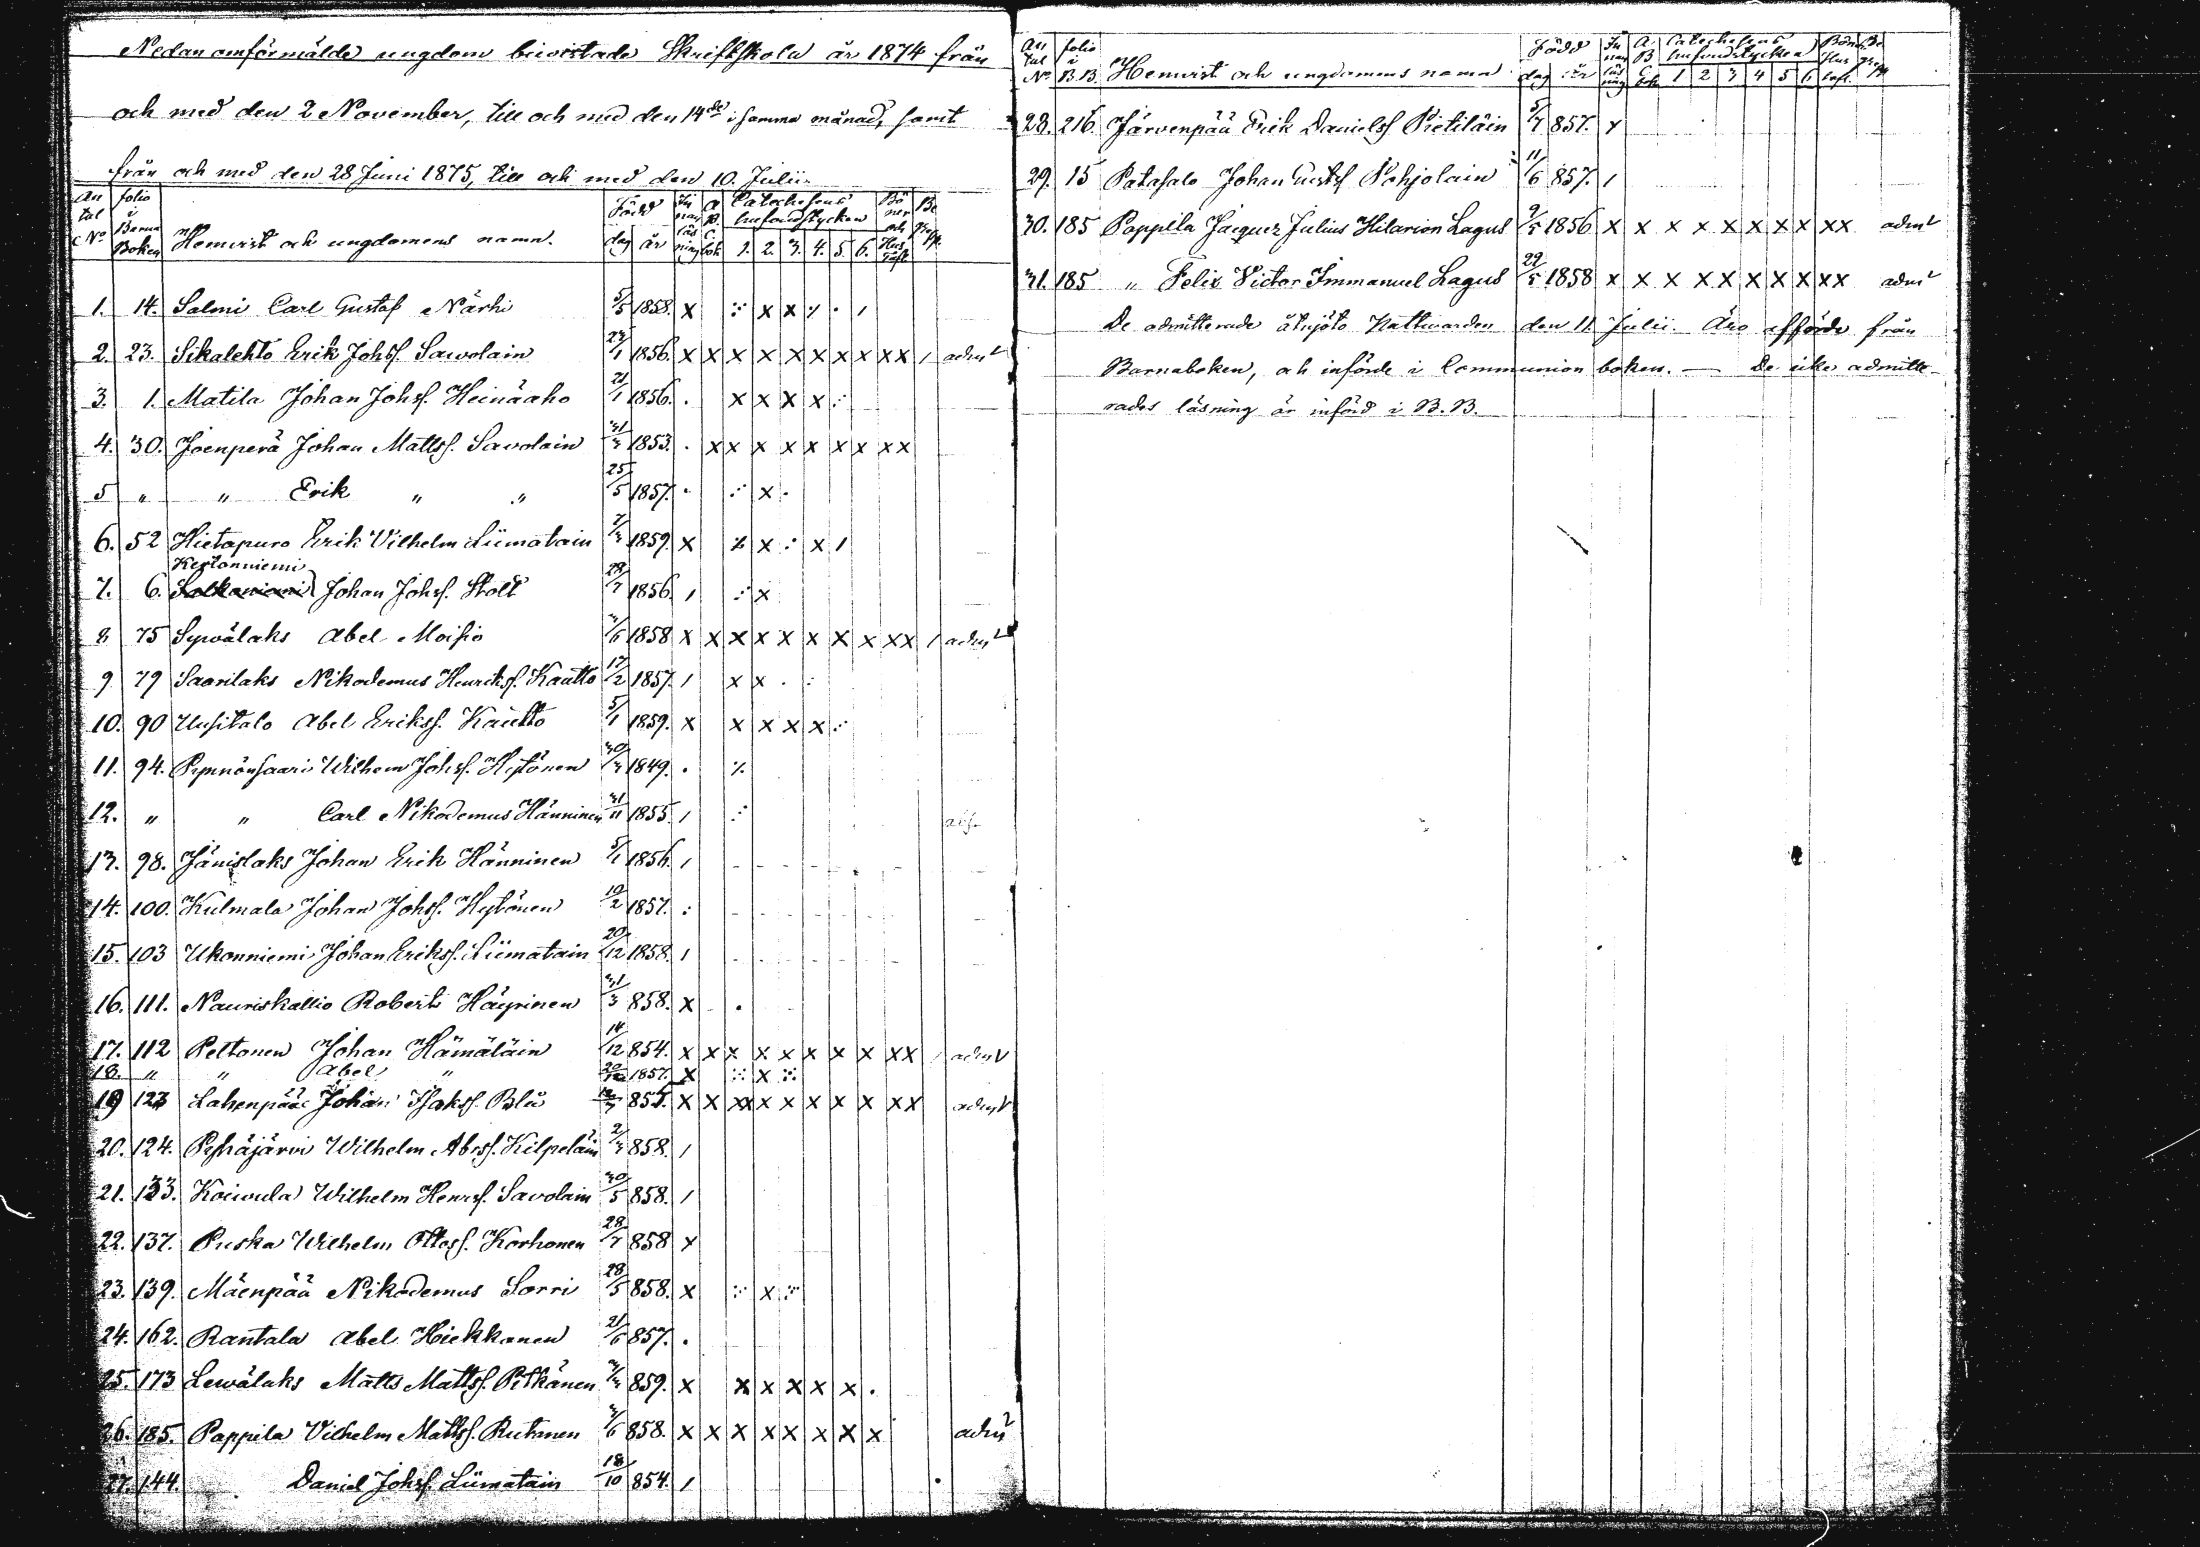 Nedan omförmälde ungdom bivistade Skriftskola år 1874 från
och med den 2 November, till och med den 14de i samma månad, samt
från och med den 28 Juni 1875, till och med den 10. Julii.
An tal No folio i Barna Boken Hemvist och ungdomens namn. Född dag år In nan läs ning A. B. C. bok Catechesens hufvudstycken 1. 2. 3. 4. 5. 6. Bö ner och Hus tafl Be grepp
1. 14. Salmi Carl Gustaf Närhi 5/5 1858. x ·:· x x ·/· · /
2. 23. Sikalehto Erik Johsf. Sawolain 23/1 1856. x x x x x x x x xx / admt
3. 1. Matila Johan Johsf. Heinäaho 21/1 1856. · x x x x ·:
4. 30. Joenperä Johan Mattsf. Savolain 31/3 1853. · x x x x x x x xx
5 " " Erik " " 25/5 1857. · ·: x ·
6. 52 Hietapuro Erik Vilhelm Liimatain 7/3 1859. x x x : x /
Kertonniemi
7. 6. Johan Johsf. Stolt 28/7 1856. / ·: x
8 75 Sywälaks Abel Moisio 3/6 1858 x x x x x x x x xx / admt
9 79 Saarilaks Nikodemus Henriksf. Kautto 17/2 1857. / x x · :
10. 90 Uusitalo Abel Eriksf. Kautto 5/1 1859. x x x x x ·:
11. 94. Pynnönsaari Wilhem Johsf. Hytönen 30/3 1849. · ·/·
12. " " Carl Nikodemus Hänninen 31/11 1855. / ·:
13. 98. Jänislaks Johan Erik Hänninen 5/1 1856. /
14. 100. Kulmala Johan Johsf. Hytönen 10/2 1857. :
15. 103 Ukonniemi Johan Eriksf. Liimatain 20/12 1858. /
16. 111. Nauriskallio Robert Häyrinen 31/3 858. x ·
17. 112 Peltonen Johan Hämäläin 14/12 854. x x x x x x x x xx / admt
18. " " Abel " 1857. x ·:· x ·:·
19 123 Lahenpää Johan Isaksf. Blå 855. x x xx x x x x x xx admt
20. 124. Pyhäjärvi Wilhelm Abrsf. Kilpeläin 2/3 858. /
21. 133. Koivula Wilhelm Henrsf. Savolain 30/5 858. /
22. 137. Puska Wilhelm Ottosf. Korhonen 28/7 858 x
23. 139. Mäenpää Nikodemus Sorri 28/5 858. x ·:· x ·:·
24. 162. Rantala Abel Hiekkanen 21/6 857. ·
25. 173 Lewälaks Matts Mattsf. Pitkänen 3/3 859. x x x x x x ·
26. 185. Pappila Vilhelm Mattsf. Rutanen 3/6 858. x x x x x x x x admt
27. 144. Daniel Johsf. Liimatain 18/10 854. /
An tal No folio i B.B. Hemvist och ungdomens namn Född dag år In nan läs ning A. B. C. bok Catechesens hufvudstycken 1 2 3 4 5 6 Böner Hus tafl. Be grepp
28. 216. Järvenpää Erik Danielsf Pietiläin 5/7 857. x
29. 15 Patasalo Johan Gustsf Pohjolain 11/6 857. /
30. 185 Pappila Jacques Julius Hilarion Lagus 9/5 1856 x x x x x x x x xx admt
31. 185 " Felix Victor Immanuel Lagus 22/5 1858 x x x x x x x x xx admt
De admitterade åtnjöto Nattwarden den 11 Julii. Äro afförde från
Barnaboken, och införde i Communion boken. — De icke admitte-
rades läsning är införd i B.B.